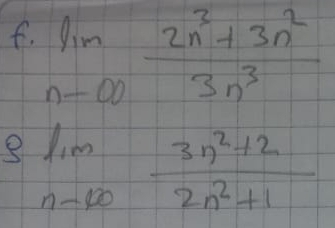 f. lim n→∞ (2n³ + 3n²) / (3n³)
g lim n→∞ (3n² + 2) / (2n² + 1)